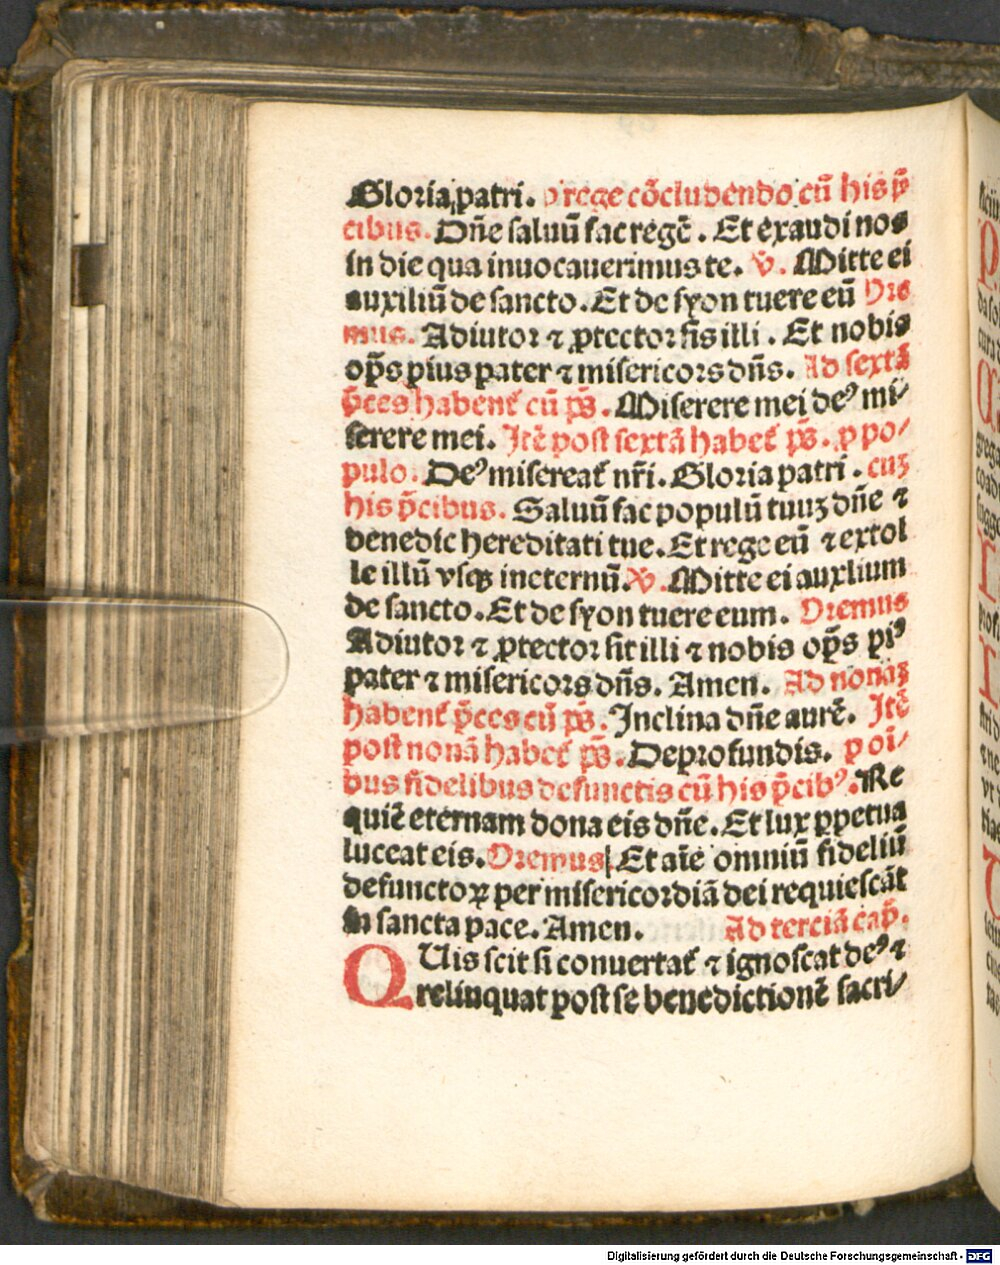 Gloria patri. p rege cōcludendo cū his p̄
cibus. Dñe saluū fac regē. Et exaudi nos
in die qua inuocauerimus te. v̄. Mitte ei
auxiliū de sancto. Et de syon tuere eū Ore
mus. Adiutor ⁊ ꝓtector sis illi. Et nobis
op̄s pius pater ⁊ misericors dñs. Ad sextā
p̄ces habent᷑ cū p̄s. Miserere mei deꝰ mi⸗
serere mei. Itē post sextā habet᷑ p̄s. ꝓ po⸗
pulo. Deꝰ misereat᷑ nr̄i. Gloria patri. cuꝫ
his p̄cibus. Saluū fac populū tuuꝫ dñe ⁊
benedic hereditati tue. Et rege eū ⁊ extol
le illū vsqꝫ in eternū. v̄. Mitte ei auxlium
de sancto. Et de syon tuere eum. Oremus
Adiutor ⁊ ꝓtector sit illi ⁊ nobis op̄s piꝰ
pater ⁊ misericors dñs. Amen. Ad nonaꝫ
habent᷑ p̄ces cū p̄s. Inclina dñe aurē. Itē
post nonā habet᷑ p̄s. De profundis. p oī⸗
bus fidelibus defunctis cū his p̄cibꝰ. Re
quiē eternam dona eis dñe. Et lux ꝑpetua
luceat eis. Oremus Et aīe omniū fideliū
defunctoꝝ per misericordiā dei requiescāt
in sancta pace. Amen. Ad terciā cap̄.
QUis scit si conuertat᷑ ⁊ ignoscat deꝰ ⁊
relinquat post se benedictionē sacri⸗
Digitalisierung gefördert durch die Deutsche Forschungsgemeinschaft - DFG